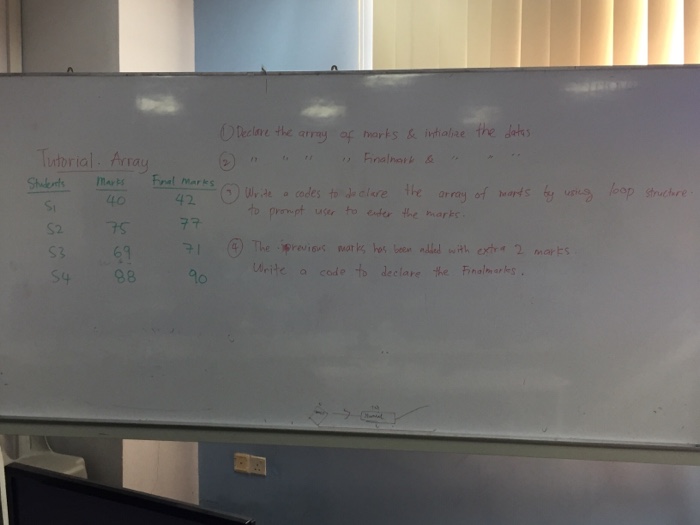 Tutorial. Array
Students Marks Final marks
S1 40 42
S2 75 77
S3 69 71
S4 88 90
① Declare the array of marks & initialize the datas
② " " " " Finalmark & " " "
③ Write a codes to declare the array of marks by using loop structure.
to prompt user to enter the marks.
④ The previous marks has been added with extra 2 marks
Write a code to declare the Finalmarks.